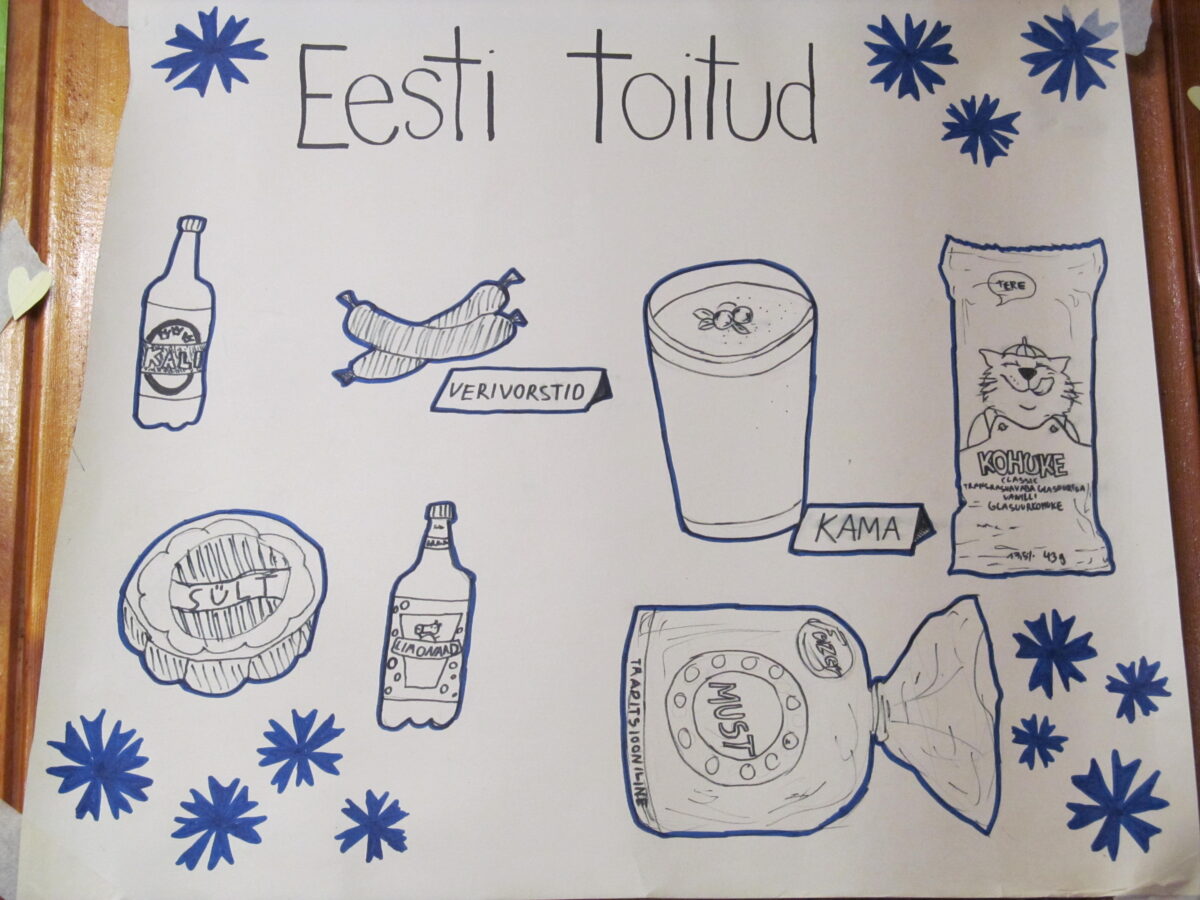 Eesti toitud
KALI
VERIVORSTID
KAMA
TERE
KOHUKE
CLASSIC
VANILLI
GLASUURKOHUKE
43g
SÜLT
LIMONAAD
FAZER
MUST
TRADITSIOONILINE